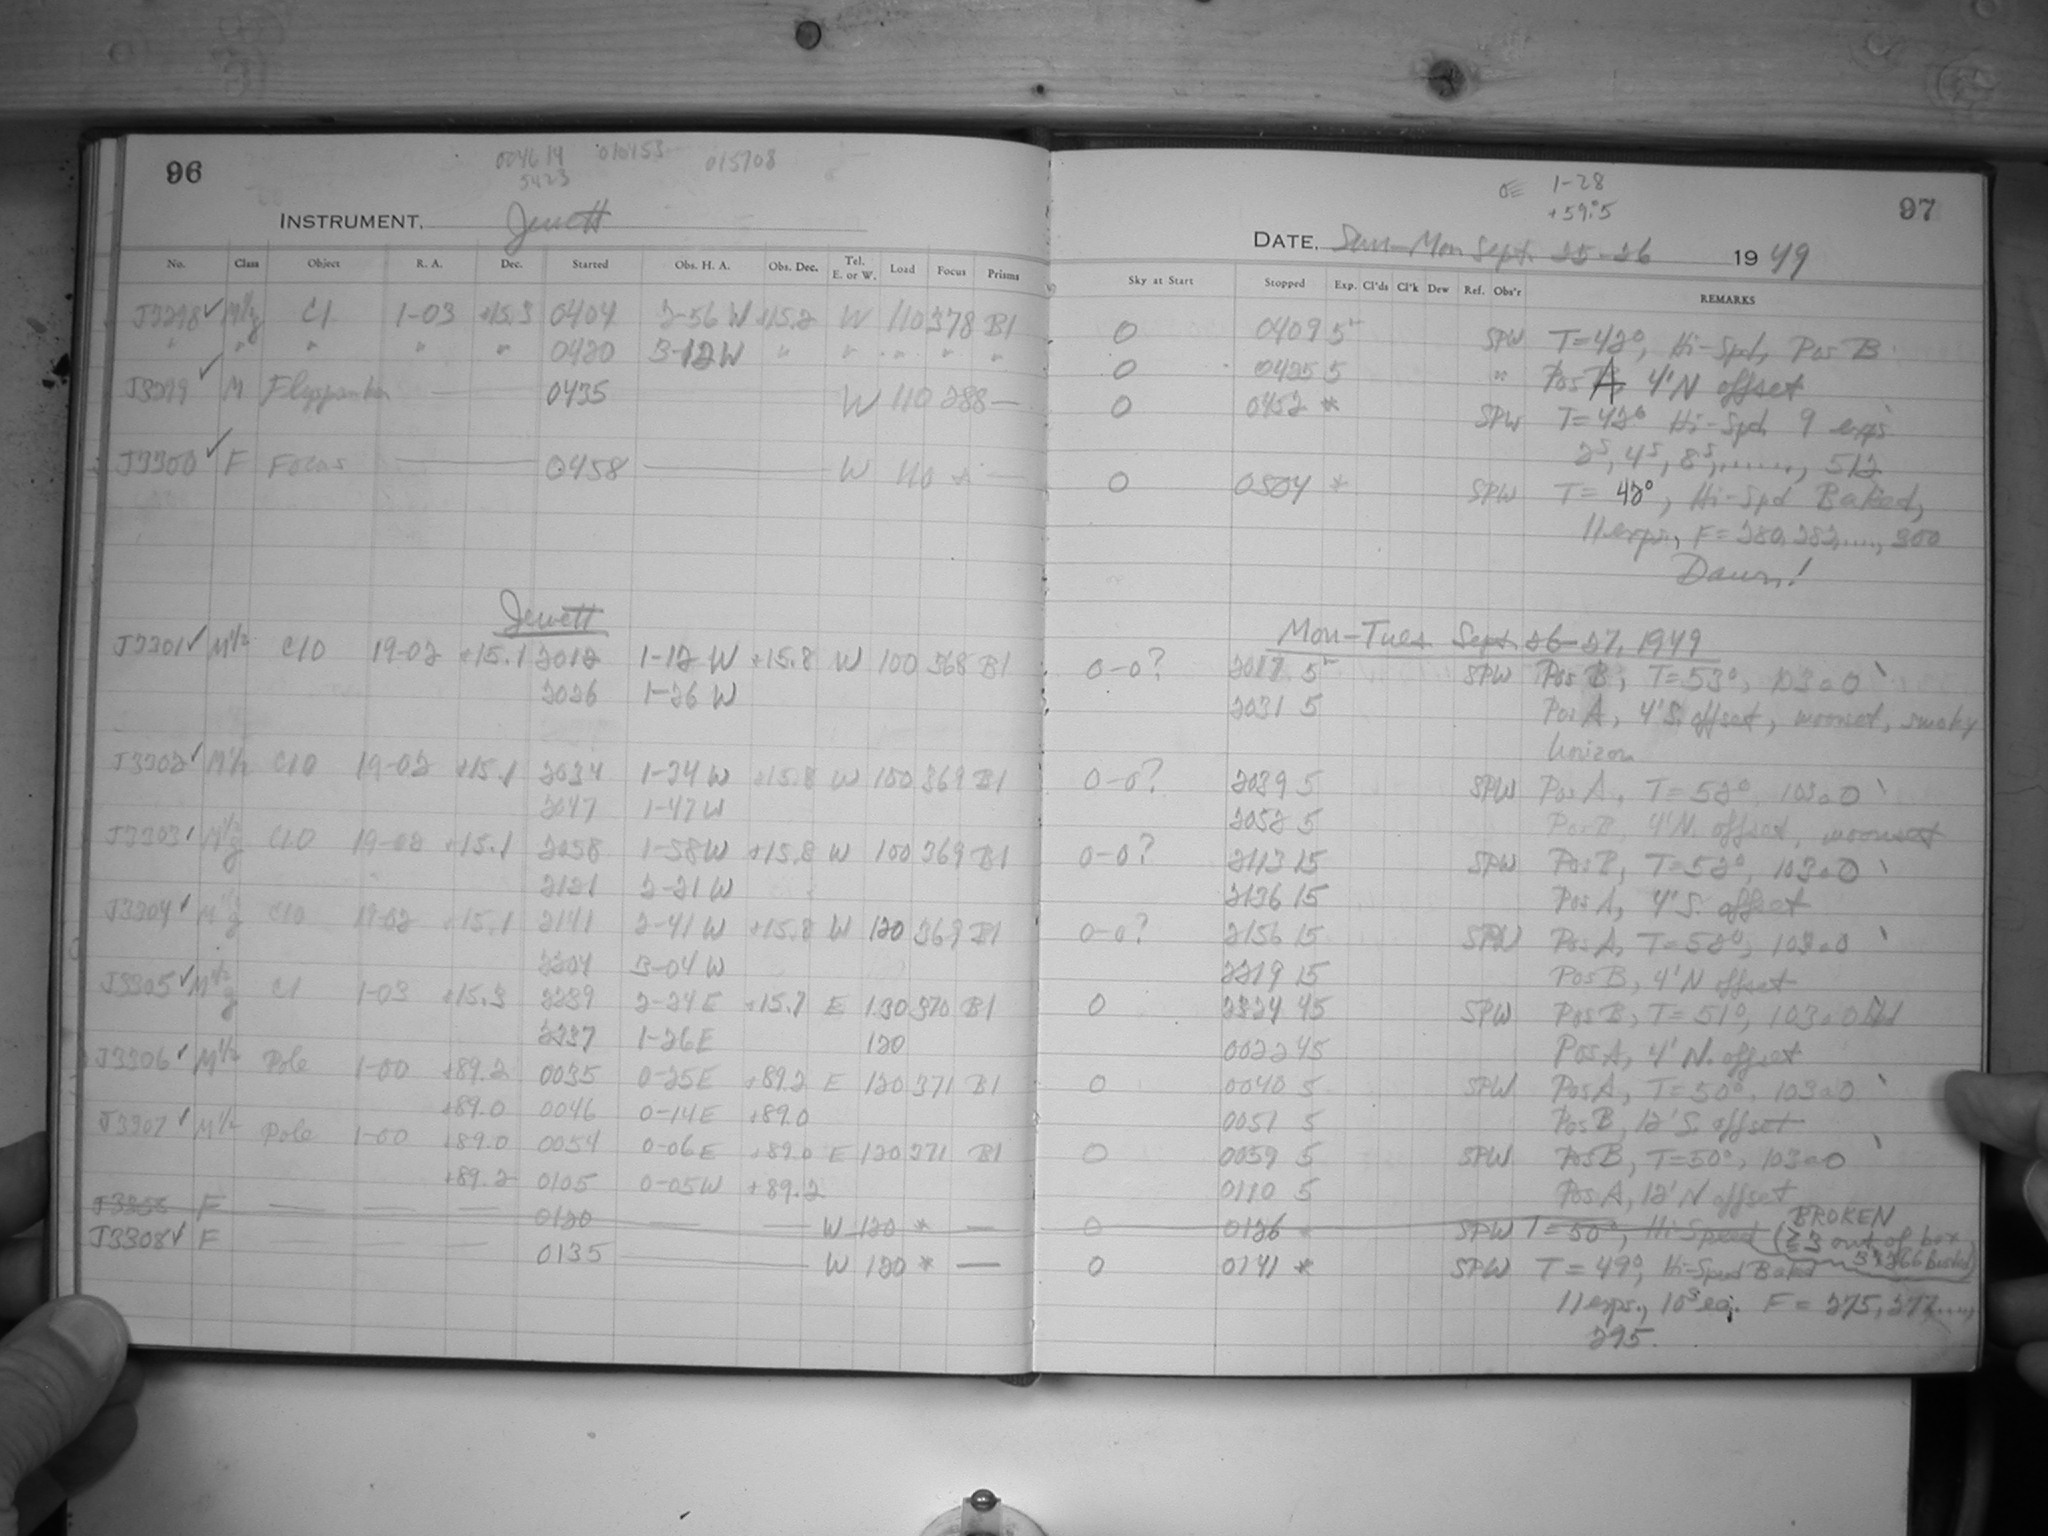 96
004614 010453 015708
5423
INSTRUMENT. Jewett
No. Class Object R. A. Dec. Started Obs. H. A. Obs. Dec. Tel. E. or W. Load Focus Prisms
J3298 ✓ M½g C1 1-03 +15.3 0404 2-56 W +15.2 W 110 378 B1
" " " " " 0420 3-12 W " " " " "
J3299 ✓ M — 0435 W 110 288 —
J3300 ✓ F Focus — 0458 — W 110 * —
Jewett
J3301 ✓ M½ C10 19-02 +15.1 2012 1-12 W +15.8 W 100 368 B1
2026 1-26 W
J3302 ✓ M½ C10 19-02 +15.1 2034 1-34 W +15.8 W 100 369 B1
2047 1-47 W
J3303 ✓ M½g C10 19-02 +15.1 2058 1-58 W +15.8 W 100 369 B1
2121 2-21 W
J3304 ✓ M½g C10 19-02 +15.1 2141 2-41 W +15.8 W 120 369 B1
2204 3-04 W
J3305 ✓ M½g C1 1-03 +15.3 2239 2-24 E +15.7 E 130 370 B1
2337 1-26 E 120
J3306 ✓ M½ Pole 1-00 +89.2 0035 0-25 E +89.2 E 120 371 B1
+89.0 0046 0-14 E +89.0
J3307 ✓ M½ Pole 1-00 +89.0 0054 0-06 E +89.0 E 120 371 B1
+89.2 0105 0-05 W +89.2
F — — — 0120 — — W 120 * —
J3308 ✓ F — — 0135 — W 120 * —
1-28
+59.°5
97
DATE. Sun-Mon Sept. 25-26 1949
Sky at Start Stopped Exp. Cl'ds Cl'k Dew Ref. Obs'r REMARKS
0 0409 5 SPW T=42°, Hi-Spd, Pos B
0 0425 5 " Pos A 4'N offset
0 0452 * SPW T=42° Hi-Spd, 9 exps
2s, 4s, 8s, ......, 512
0 0504 * SPW T= 42°, Hi-Spd Baked,
11 exps, F=280, 282, ...., 300
Dawn!
Mon-Tues Sept. 26-27, 1949
0-0? 2017 5 SPW Pos B, T=53°, 103a0
2031 5 Pos A, 4'S. offset, moonset, smoky
horizon
0-0? 2039 5 SPW Pos A, T=52°, 103a0
2052 5 Pos B, 4'N. offset, moonset
0-0? 2113 15 SPW Pos B, T=52°, 103a0
2136 15 Pos A, 4'S. offset
0-0? 2156 15 SPW Pos A, T=52°, 103a0
2219 15 Pos B, 4'N offset
0 2324 45 SPW Pos B, T=51°, 103a0
0022 45 Pos A, 4'N. offset
0 0040 5 SPW Pos A, T=50°, 103a0
0051 5 Pos B, 12'S. offset
0 0059 5 SPW Pos B, T=50°, 103a0
0110 5 Pos A, 12'N offset
0 0126 * SPW T=50°, Hi-Speed BROKEN (≥3 out of box
0 0141 * SPW T=49°, Hi-Speed Baked
11 exps., 10s ea. F = 275, 277, ....,
295.